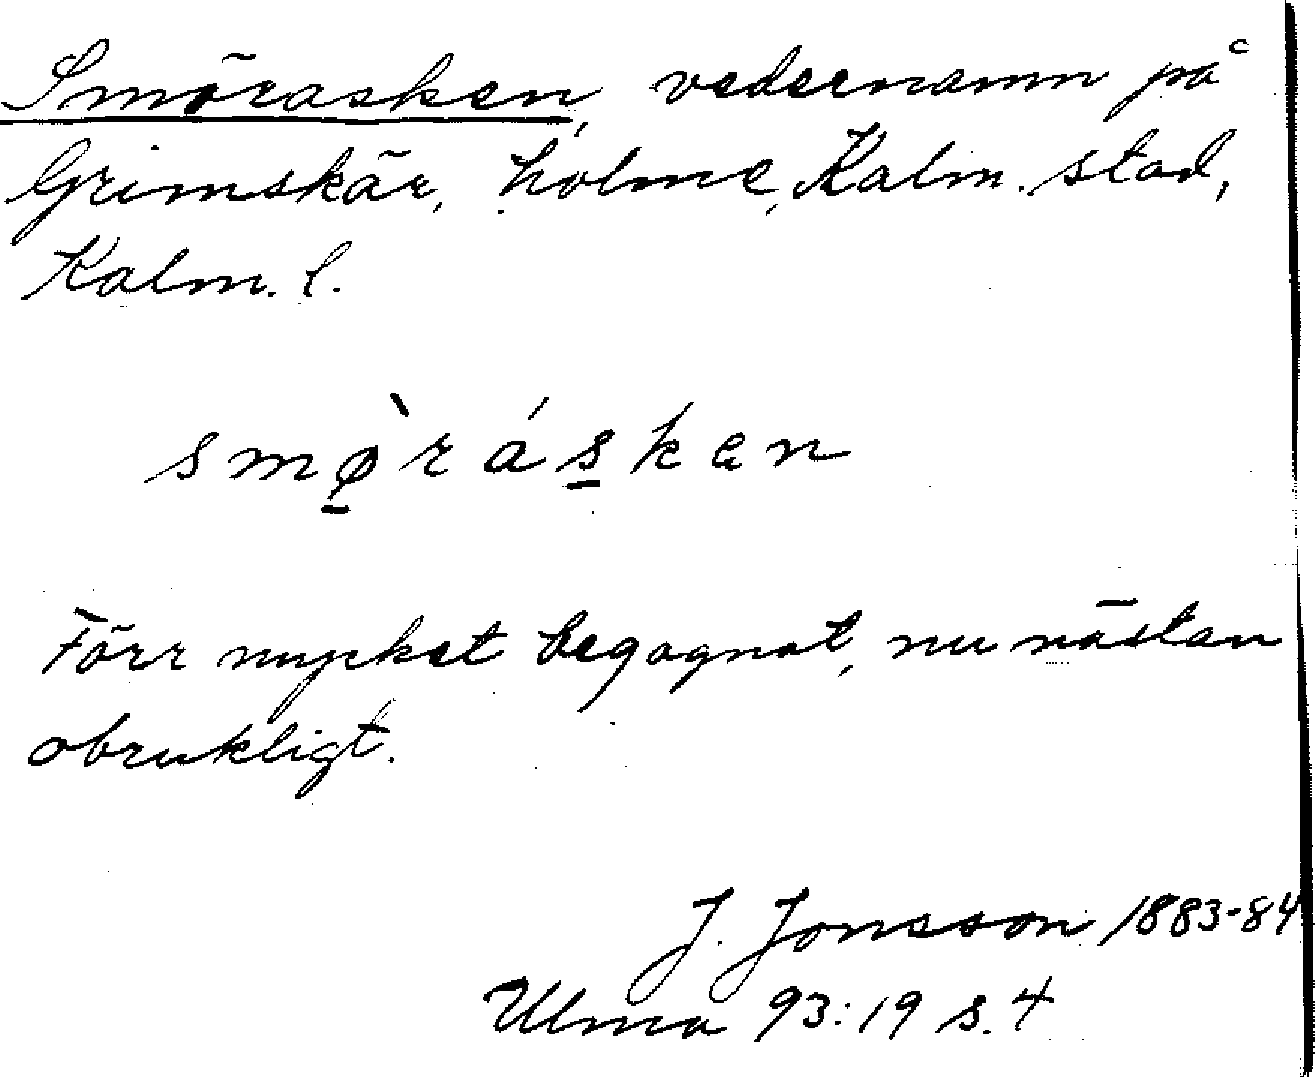 Smörasken, vedernamn på
Grimskär, holme, Kalm. stad,
Kalm. l.
smø̱̀rás̱ken
Förr mycket begagnat, nu nästan
obrukligt.
J. Jonsson 1883-84
Ulma 93:19 s. 4